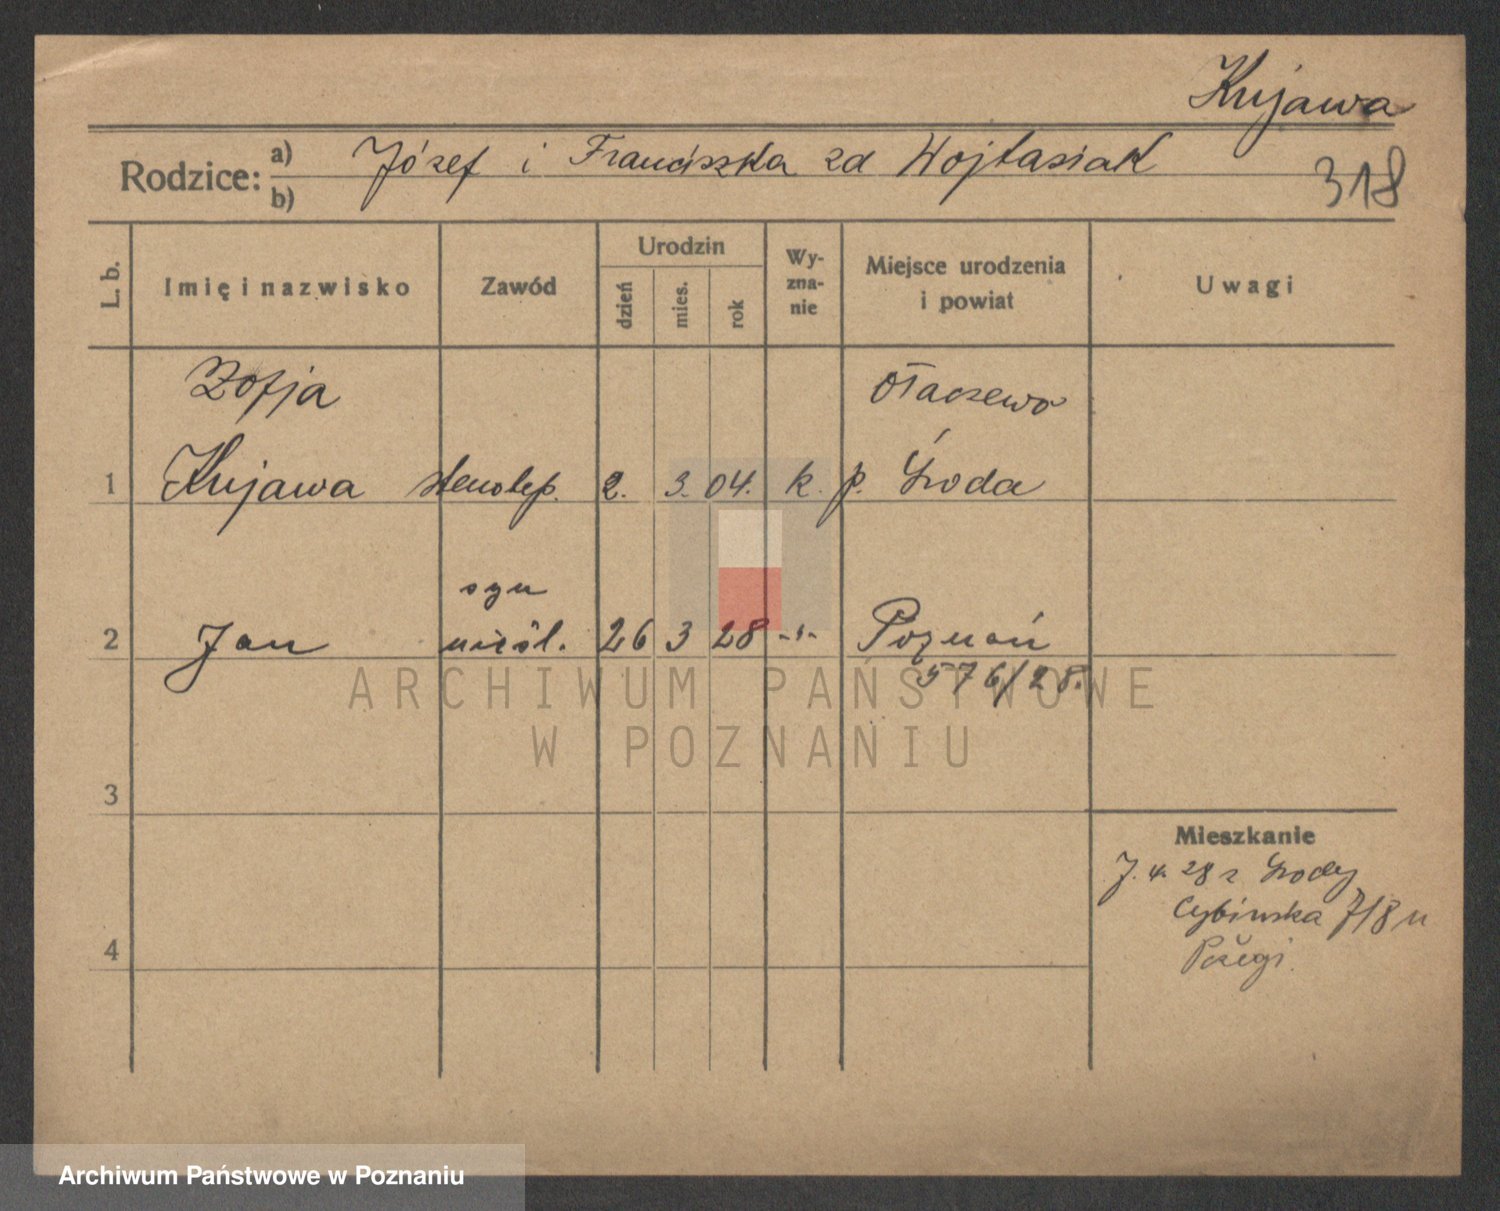 Kujawa
Rodzice: a) Józef i Franciszka zd Wojtasiak
b)
318
L. b.
Imię i nazwisko
Zawód
Urodzin
dzień
mies.
rok
Wy-
zna-
nie
Miejsce urodzenia
i powiat
Uwagi
Zofja Ołaczewo
1 Kujawa stenotyp. 2. 3. 04. k. p. Środa
syn
2 Jan nieśl. 26 3 28 -"- Poznań
576/28.
ARCHIWUM PAŃSTWOWE
W POZNANIU
3
Mieszkanie
28 z Środy
Cybińska 7/8 u
4
Archiwum Państwowe w Poznaniu